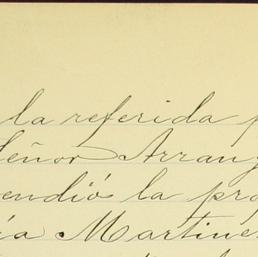 la referida
Señor Arranz
endió la pro
ía Martíne